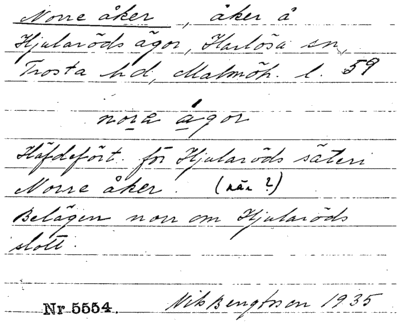 Norre åker, åker å
Hjularöds ägor, Harlösa sn,
Frosta hd, Malmöh. l. 59
nora ågor
Häfdefört. för Hjularöds säteri
Norre åker. (när?)
Belägen norr om Hjularöds
slott.
Nr 5554. Nils Bengtsson 1935